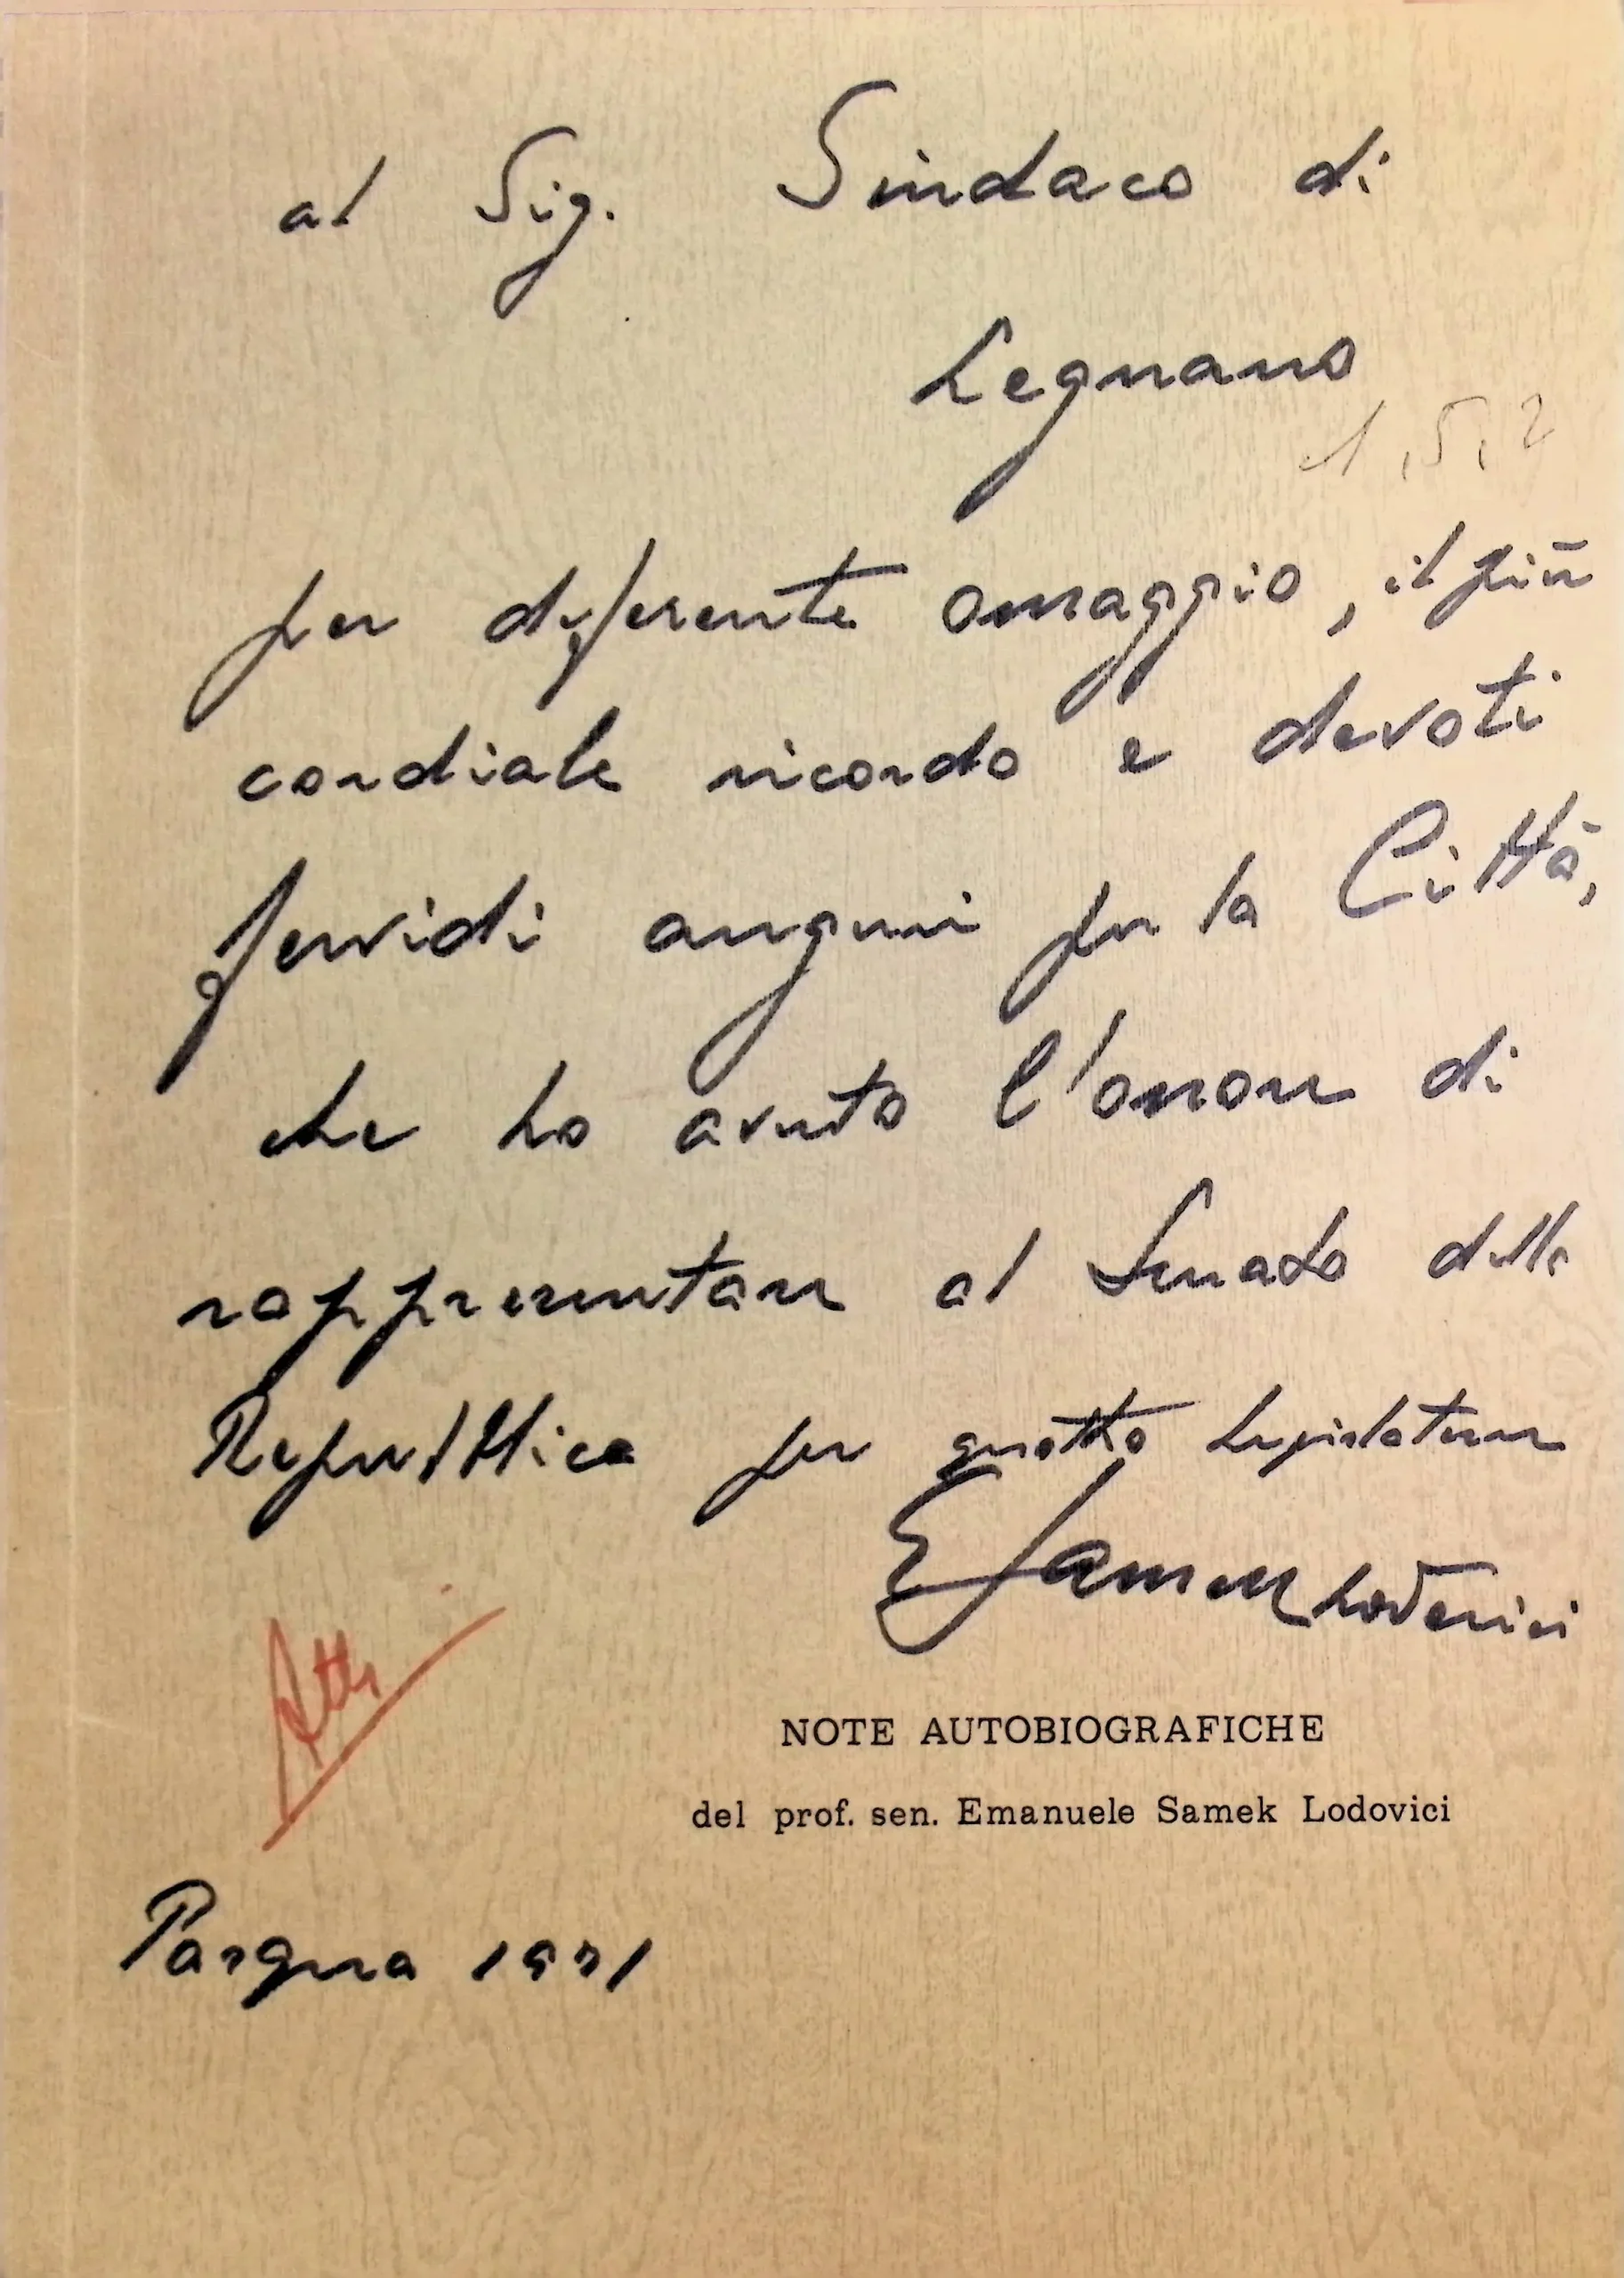 al Sig. Sindaco di
Legnano
1.5.2
per deferente omaggio, il più
cordiale ricordo e devoti
fervidi auguri per la Città,
che ho avuto l'onore di
rappresentare al Senato della
Repubblica per quattro Legislature
E Samek Lodovici
Atti
NOTE AUTOBIOGRAFICHE
del prof. sen. Emanuele Samek Lodovici
Pasqua 1971